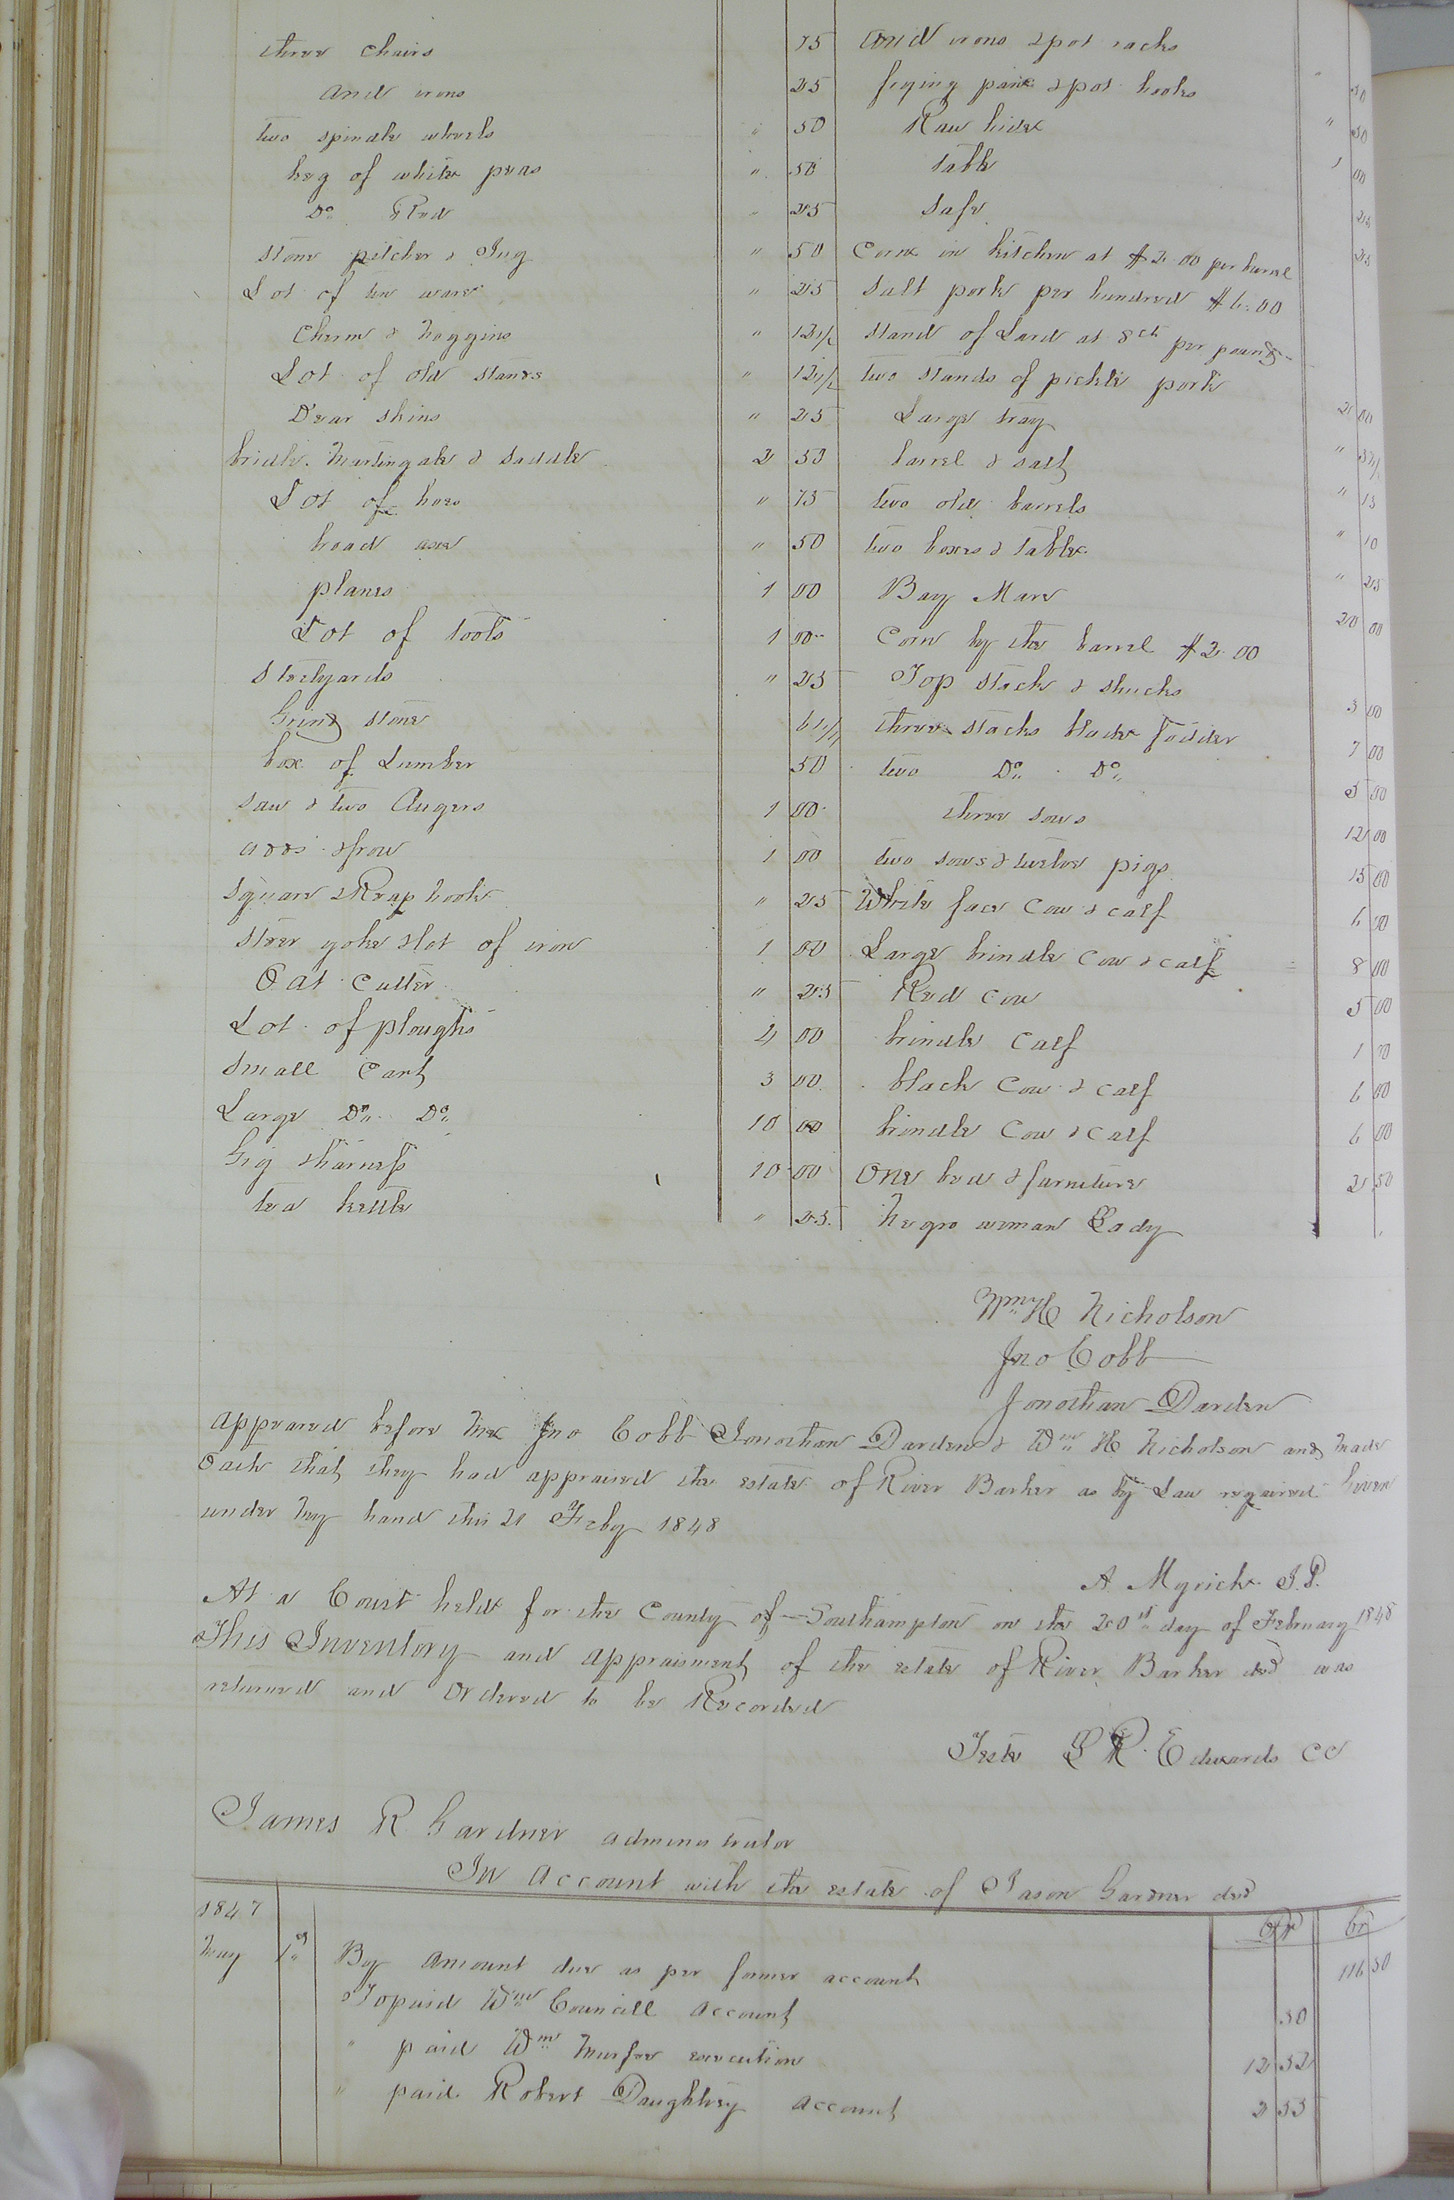 three chairs 75
and irons 25
two spindle wheels " 50
keg of white peas " 50
Do Red " 25
stone pitcher & Jug " 50
Lot of tin ware " 25
Churn & noggins " 12 1/2
Lot of old stands " 12 1/2
Dear skins " 25
bridle. Martingale & saddle 2 50
Lot of hoes " 75
broad axe " 50
planes 1 00
Lot of tools 1 00
Steelyards " 25
Grind stone 6 1/4
box of Lumber 50
Saw & two Augers 1 00
adds & frow 1 00
Square & Reap hook " 25
Steer yoke & lot of iron 1 00
Oat Cutter " 25
Lot of ploughs 4 00
Small Cart 3 00
Large Do Do 10 00
Gig & harness 10 00
tea kettle " 25
and irons & pot racks " 50
frying pan & pot hooks " 50
Raw hide 1 00
table 25
Safe 25
Corn in kitchen at $2.00 per barrel
Salt pork per hundred $6.00
stand of Lard at 8 cts per pound
two stands of pickle pork 2 00
Large tray "
barrel & salt " 15
two old barrels " 10
two boxes & table " 25
Bay Mare 20 00
Corn by the barrel $2.00
Top stack & shucks 3 00
three stacks blade fodder 7 00
two Do Do 5 00
three sows 12 00
two sows & twelve pigs 15 00
White face Cow & calf 6 00
Large brindle Cow & calf 8 00
Red cow 5 00
brindle Calf 1 00
black Cow & calf 6 00
brindle Cow & calf 6 00
One bed & furniture 2 50
Negro woman Lady
Wm H Nicholson
Jno Cobb
Jonathan Darden
Appeared before me Jno Cobb Jonathan Darden & Wm H Nicholson and made
Oath that they had appraised the estate of River Barker as by Law required Given
under my hand this 21 Feby 1848
A. Myrick J.P.
At a Court held for the County of Southampton on the 20th day of February 1848
This Inventory and appraisment of the estate of River Barker decd was
returned and Ordered to be Recorded
Teste L R. Edwards CC
James R Gardner administrator
In Account with the estate of Jason Gardner decd
1847 Dr Cr
May 1st By amount due as per former account 116 50
To paid Wm Councill account 50
" paid Wm Murfee execution 12 52
" paid Robert Daughtrey account 2 55